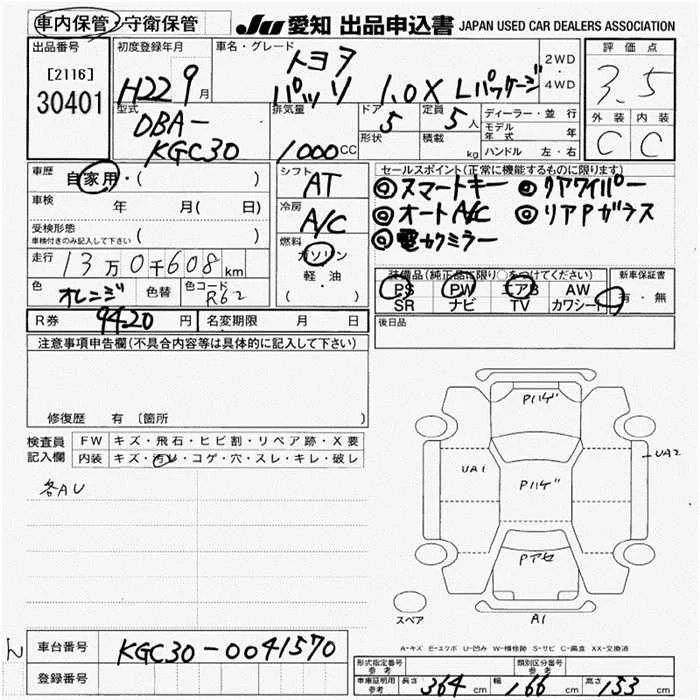 車内保管・守衛保管
JU 愛知 出品申込書 JAPAN USED CAR DEALERS ASSOCIATION
出品番号
[2116]
30401
初度登録年月
H22 9月
車名・グレード
トヨタ
パッソ 1.0X Lパッケージ
2WD・4WD
評価点
3.5
外装 内装
C C
型式
DBA-
KGC30
排気量
1000CC
ドア 5
形状
定員 5人
積載 kg
ディーラー・並行
モデル年式 年
ハンドル 左・右
車歴 自家用・( )
車検 年 月( 日)
受検形態
車検付きのみ記入して下さい ( )
走行 13万0千608km
色 オレンジ 色替 色コード R62
シフト
AT
冷房
A/C
燃料
ガソリン
軽・油
( ・ )
セールスポイント(正常に機能するものに限ります)
◎スマートキー ◎リアワイパー
◎オートA/C ◎リアPガラス
◎電カクミラー
装備品(純正品に限り○をつけてください)
PS PW エアB AW
SR ナビ TV カワシート
新車保証書
有・無
R券 9420円 名変期限 月 日
後日品
注意事項申告欄(不具合内容等は具体的に記入して下さい)
修復歴 有〔箇所 〕
検査員記入欄
FW キズ・飛石・ヒビ割・リペア跡・X要
内装 キズ・汚レ・コゲ・穴・スレ・キレ・破レ
各AU
Pハゲ
UA1
Pハゲ
UA2
Pアセ
A1
スペア
A-キズ E-エクボ U-凹み W-補修跡 S-サビ C-腐食 XX-交換済
車台番号 KGC30-0041570
登録番号
型式指定番号 参考
類別区分番号 参考
車庫証明用 参考 長さ 364cm 幅 166cm 高さ 153cm